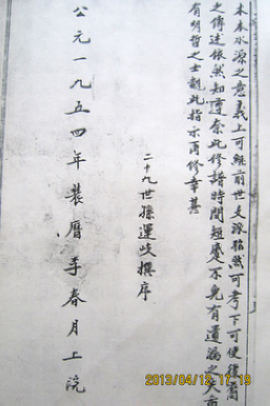 木本水源之意義上可經前世支派猶然可考下可使後裔
之傳述依然知遵奈此修譜時間短處不免有遺漏之失而
有明哲之士亦此指示再修幸甚
二十九世孫運岐撰序
公元一九五四年裝曆季春月上浣
2013/04/12 17:19